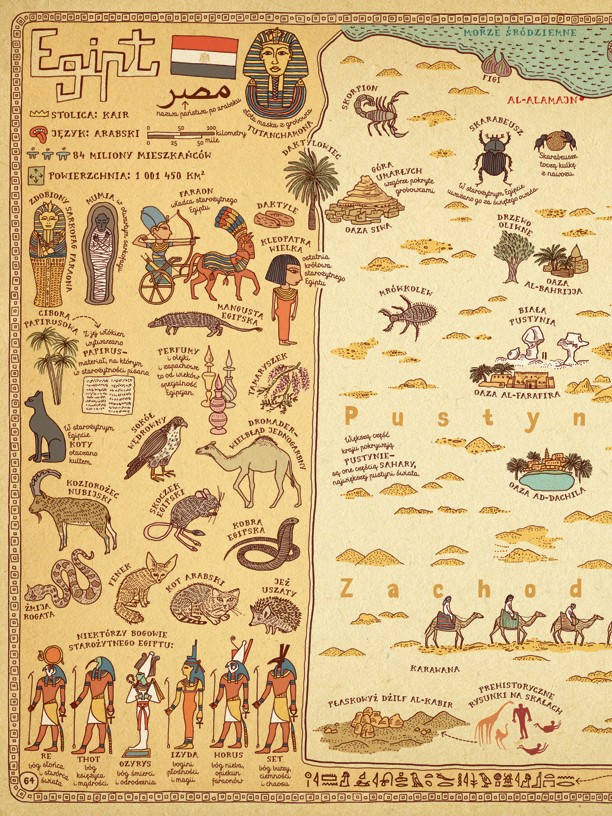 Egipt
مصر
nazwa państwa po arabsku
złota maska z grobowca
TUTANCHAMONA
STOLICA: KAIR
JĘZYK: ARABSKI
0 50 100 kilometry
0 50 mile
84 MILIONY MIESZKAŃCÓW
POWIERZCHNIA: 1 001 450 KM²
ZDOBIONY
SARKOFAG FARAONA
MUMIA
w otwartym sarkofagu
FARAON
władca starożytnego
Egiptu
DAKTYLE
DAKTYLOWIEC
KLEOPATRA
WIELKA
ostatnia
królowa
starożytnego
Egiptu
MANGUSTA
EGIPSKA
CIBORA
PAPIRUSOWA
Z jej włókien
wytwarzano
PAPIRUS—
materiał, na którym
w starożytności pisano
PERFUMY
i olejki
zapachowe
to od wieków
specjalność
Egipcjan
TAMARYSZEK
W starożytnym
Egipcie
KOTY
otaczano
kultem
SOKÓŁ
WĘDROWNY
DROMADER—
WIELBŁĄD JEDNOGARBNY
KOZIOROŻEC
NUBIJSKI
SKOCZEK
EGIPSKI
KOBRA
EGIPSKA
ŻMIJA
ROGATA
FENEK
KOT ARABSKI
JEŻ
USZATY
NIEKTÓRZY BOGOWIE
STAROŻYTNEGO EGIPTU:
RE
bóg słońca
i stwórca
świata
THOT
bóg
księżyca
i mądrości
OZYRYS
bóg śmierci
i odrodzenia
IZYDA
bogini
płodności
i magii
HORUS
bóg nieba,
opiekun
faraonów
SET
bóg burzy,
ciemności
i chaosu
64
MORZE ŚRÓDZIEMNE
FIGI
AL-ALAMAJN
SKORPION
SKARABEUSZ
W starożytnym Egipcie
uważano go za świętego owada
Skarabeusze
toczą kulkę
z nawozu
GÓRA
UMARŁYCH
wzgórze pokryte
grobowcami
OAZA SIWA
DRZEWO
OLIWNE
OAZA
AL-BAHRIJJA
MRÓWKOLEW
BIAŁA
PUSTYNIA
OAZA AL-FARAFIRA
Pustyn
Większą część
kraju pokrywają
PUSTYNIE—
są one częścią SAHARY,
największej pustyni świata
OAZA AD-DACHILA
Zachod
KARAWANA
PŁASKOWYŻ DŻILF AL-KABIR
PREHISTORYCZNE
RYSUNKI NA SKAŁACH